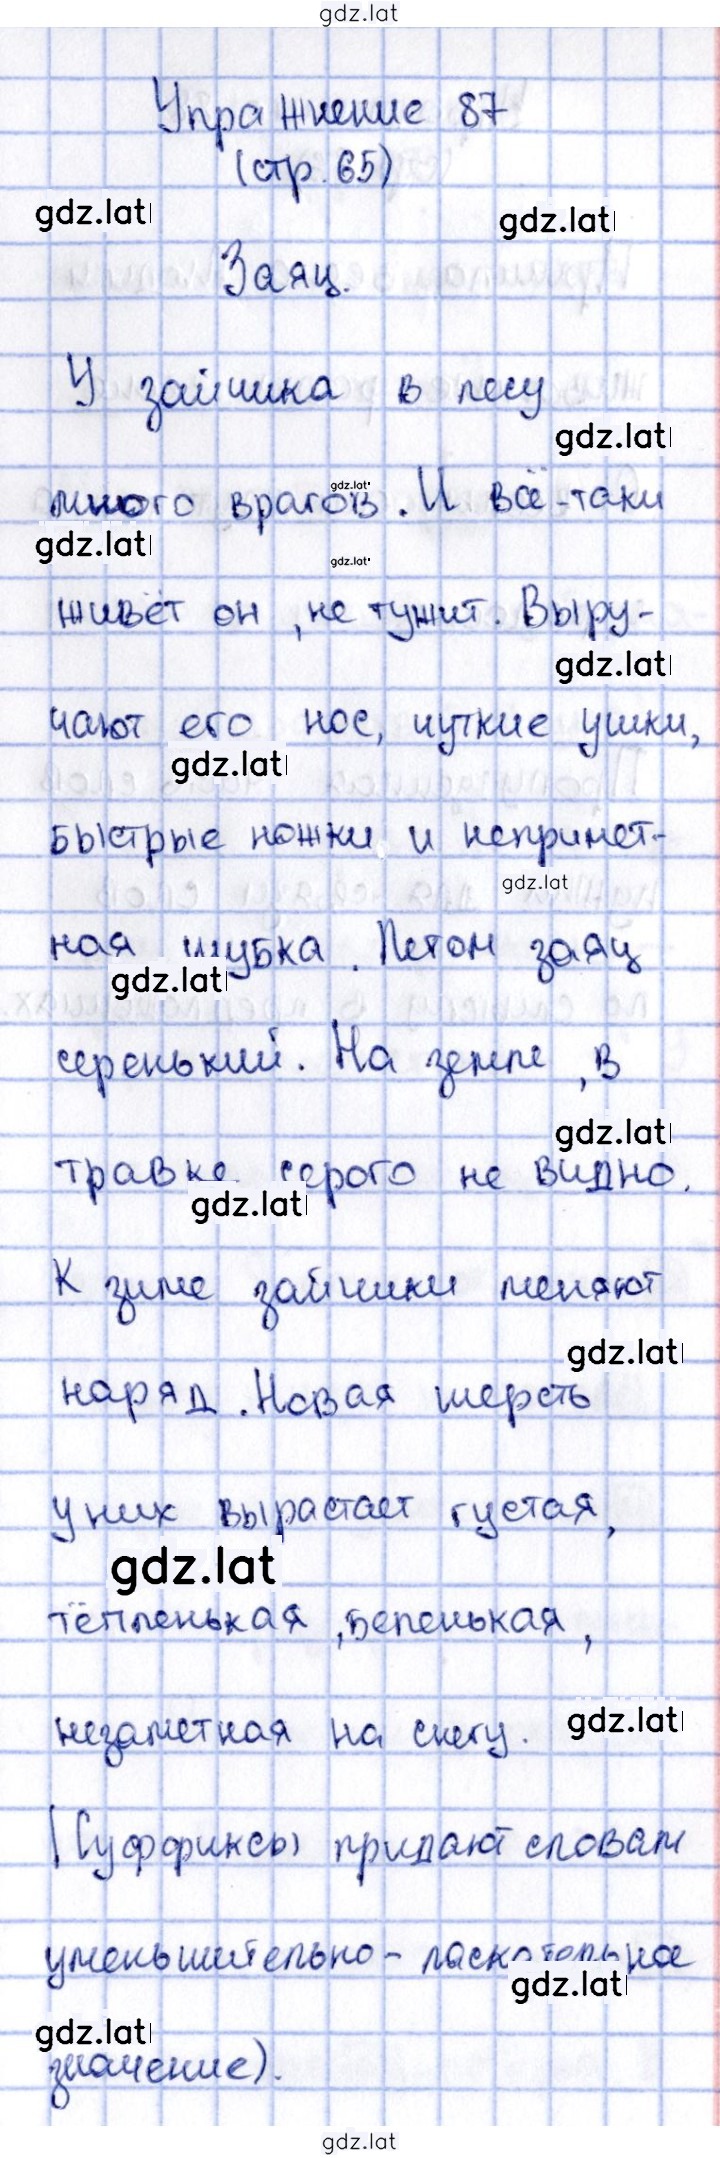 gdz.lat
Упражнение 87
(стр. 65)
gdz.lat
gdz.lat
Заяц.
У зайчика в лесу
gdz.lat
gdz.lat
много врагов. И всё-таки
gdz.lat
gdz.lat
живёт он, не тужит. Выру-
gdz.lat
чают его нос, чуткие ушки,
gdz.lat
быстрые ножки и непримет-
gdz.lat
ная шубка. Летом заяц
gdz.lat
серенький. На земле, в
gdz.lat
травке серого не видно.
gdz.lat
К зиме зайчики меняют
gdz.lat
наряд. Новая шерсть
у них вырастает густая,
gdz.lat
тёпленькая, беленькая,
gdz.lat
незаметная на снегу.
(Суффиксы придают словам
уменьшительно-ласкательное
gdz.lat
gdz.lat
значение).
gdz.lat